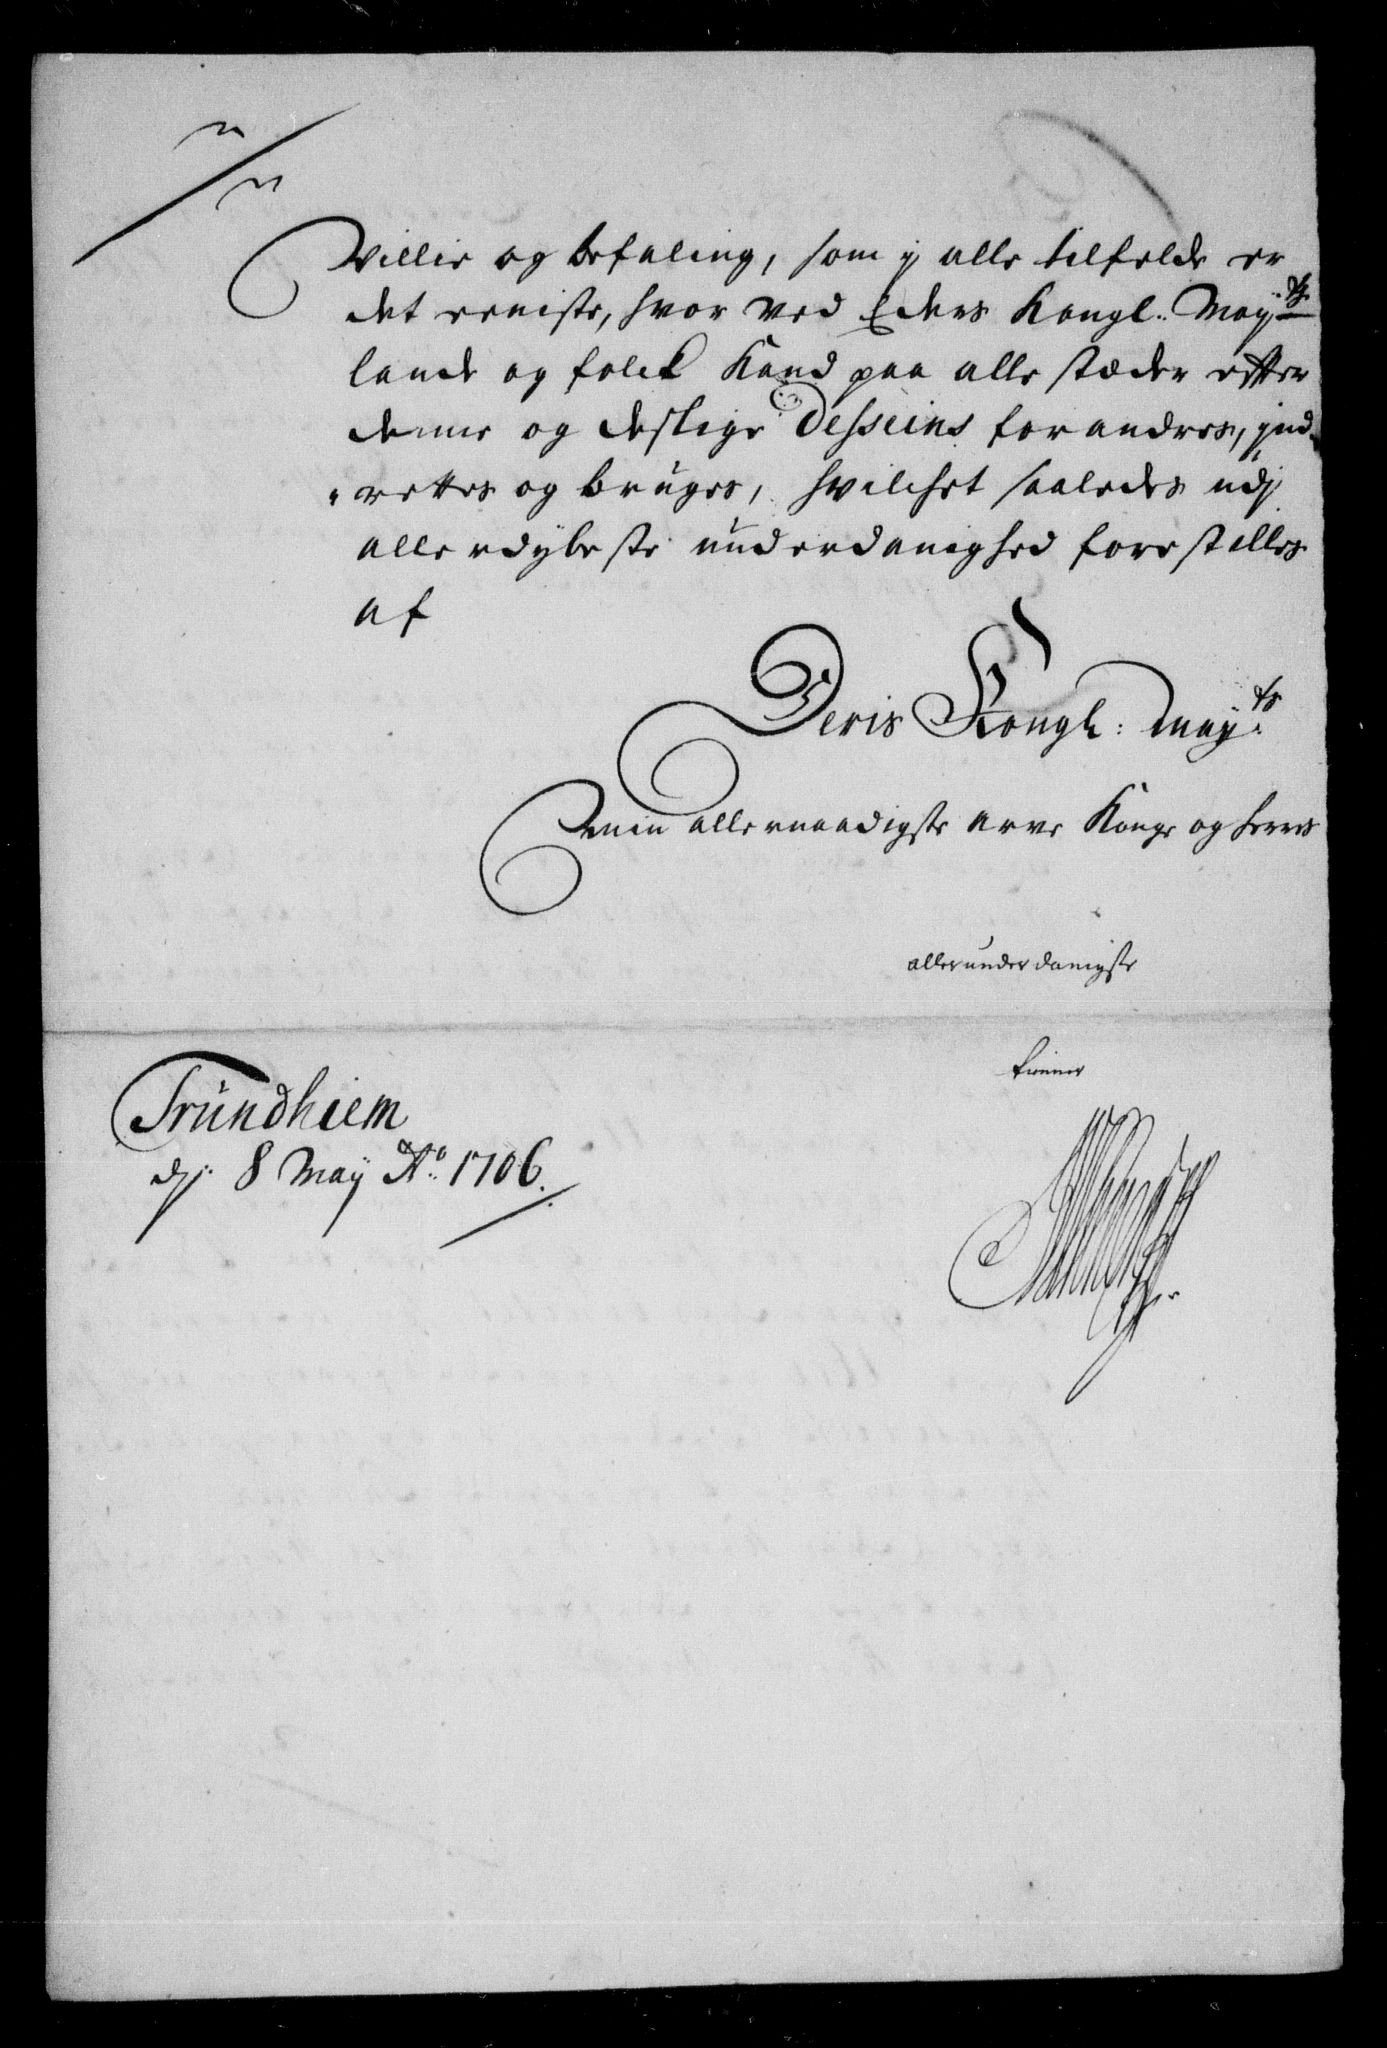 Villie og befaling, som j alle tilfelde er
det eeniste, hvor ved Eders Kongl. Mayts
lande og folck Kand paa alle stæder efter
denne og deslige Desseins forandres, jnd-
rettes og bruges, hvilchet saaledes udj
allerdybeste underdanighed forestilles
af
Deris Kongl: Mayts
min allernaadigste arve Konge og herres
allerunderdanigste
tienner
Trundhiem
dj. 8 May Ao. 1706.